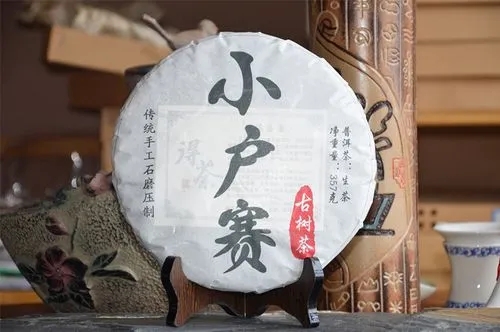 小户赛
古树茶
普洱茶：生茶
净重量：357克
传统手工石磨压制
得荟